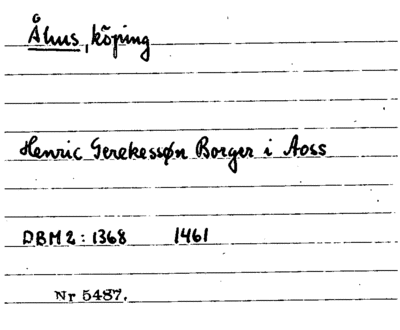 Åhus, köping
Henric Gerekessøn Borger i Aoss
DBM2: 1368 1461
Nr 5487.